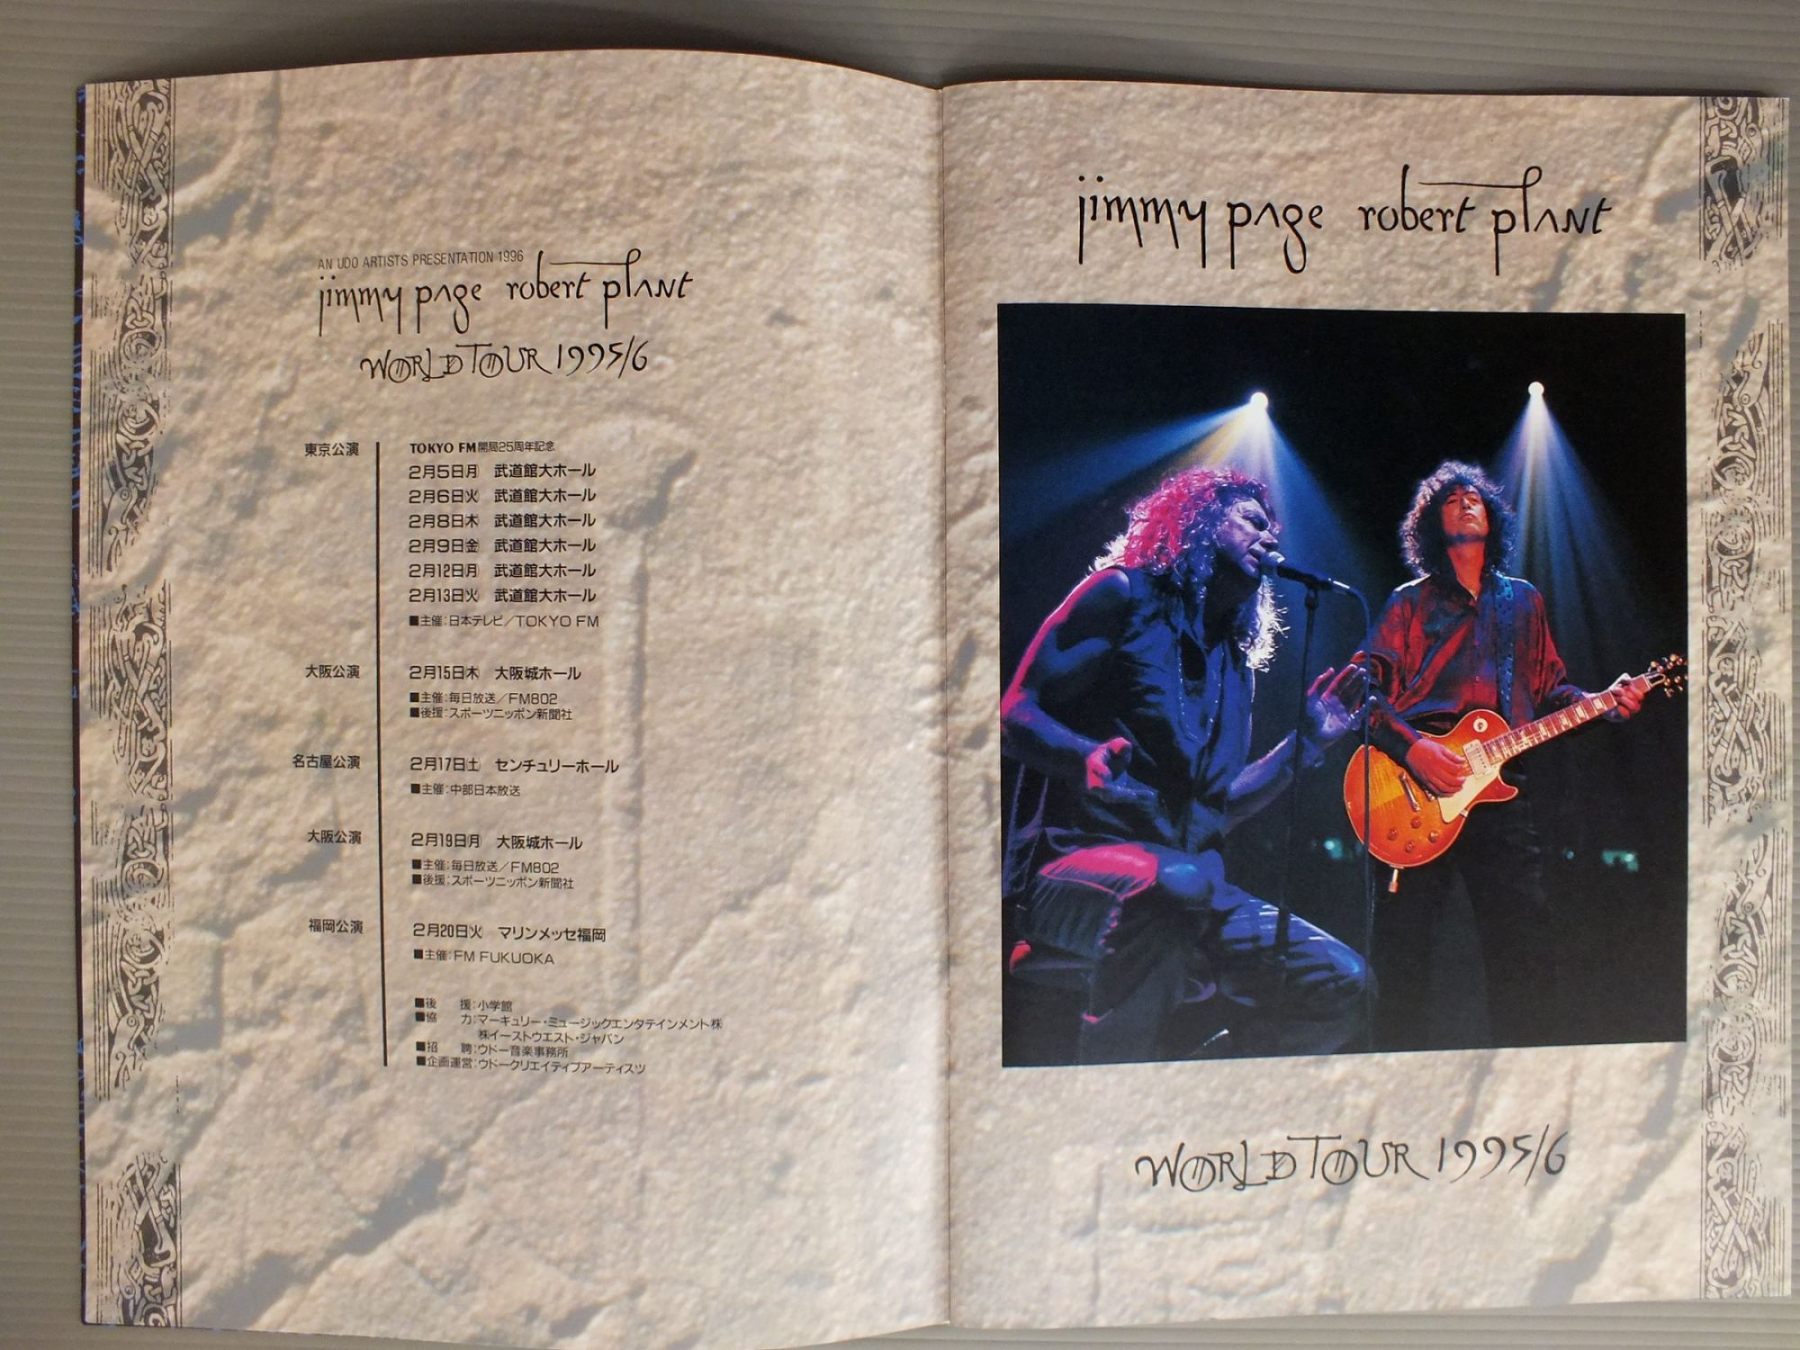 AN UDO ARTISTS PRESENTATION 1996
jimmy page robert plant
WORLD TOUR 1995/6
東京公演
TOKYO FM開局25周年記念
2月5日月 武道館大ホール
2月6日火 武道館大ホール
2月8日木 武道館大ホール
2月9日金 武道館大ホール
2月12日月 武道館大ホール
2月13日火 武道館大ホール
■主催:日本テレビ/TOKYO FM
大阪公演
2月15日木 大阪城ホール
■主催:毎日放送/FM802
■後援:スポーツニッポン新聞社
名古屋公演
2月17日土 センチュリーホール
■主催:中部日本放送
大阪公演
2月19日月 大阪城ホール
■主催:毎日放送/FM802
■後援:スポーツニッポン新聞社
福岡公演
2月20日火 マリンメッセ福岡
■主催:FM FUKUOKA
■後 援:小学館
■協 力:マーキュリー・ミュージックエンタテインメント株
株イーストウエスト・ジャパン
■招 聘:ウドー音楽事務所
■企画運営:ウドークリエイティブアーティスツ
jimmy page robert plant
WORLD TOUR 1995/6